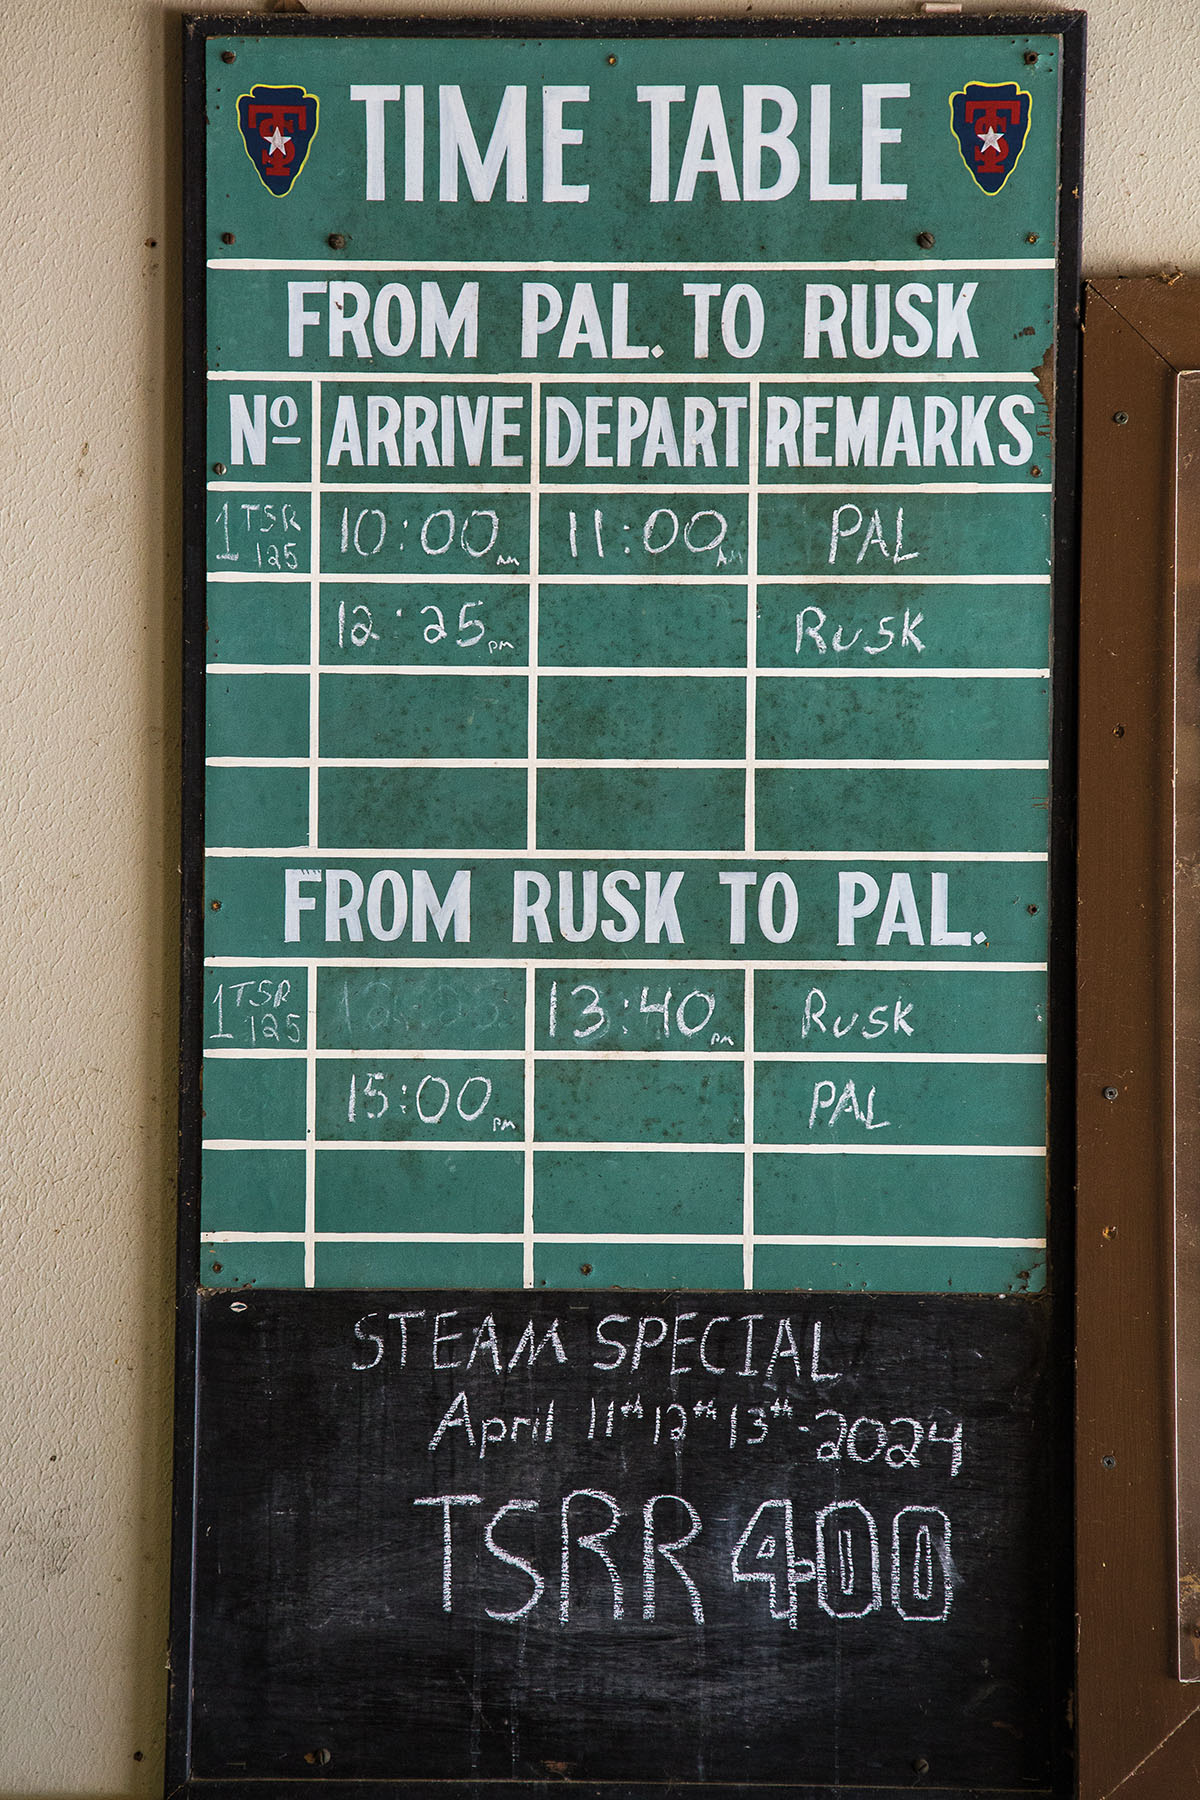 TIME TABLE
FROM PAL. TO RUSK
Nº ARRIVE DEPART REMARKS
1 TSR 125 10:00 AM 11:00 AM PAL
12:25 PM RUSK
FROM RUSK TO PAL.
1 TSR 125 13:40 PM RUSK
15:00 PM PAL
STEAM SPECIAL
April 11th 12th 13th - 2024
TSRR 400